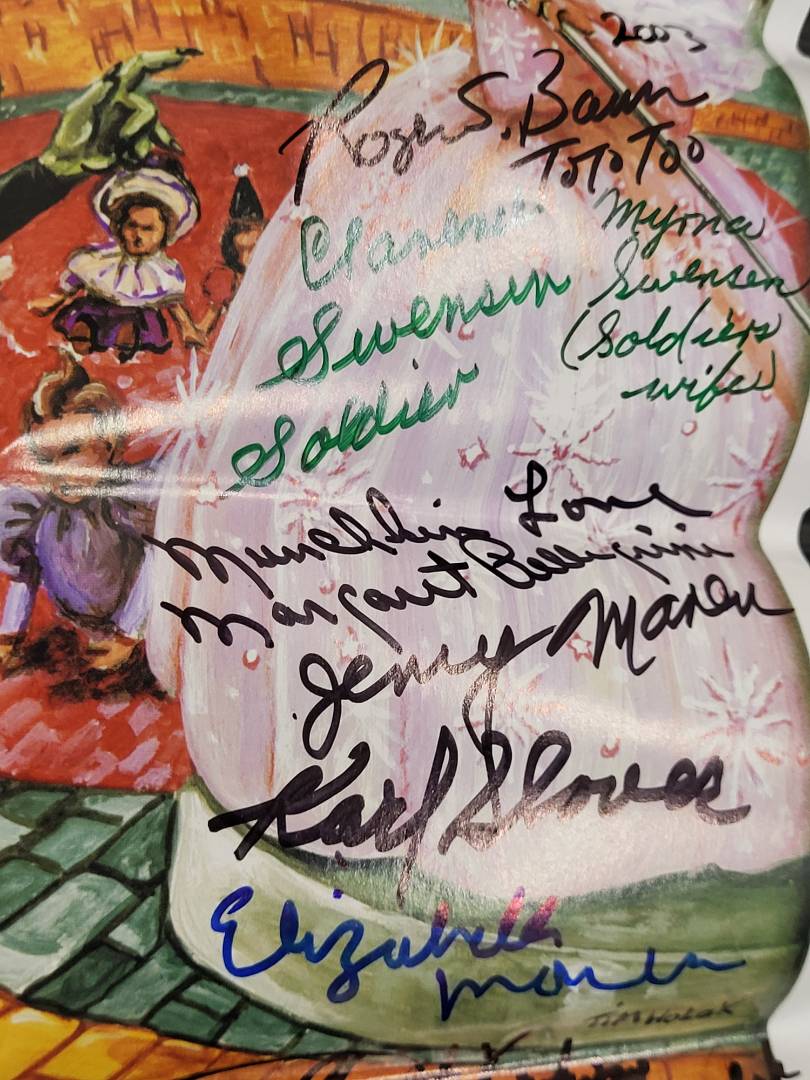 2003
Roger S. Baum
ToTo Too
Clarence
Swensen
Soldier
Myrna
Swensen
(Soldiers
wife)
Munchkin Love
Margaret Pellegrini
Jerry Maren
Karl Slover
Elizabeth
Maren